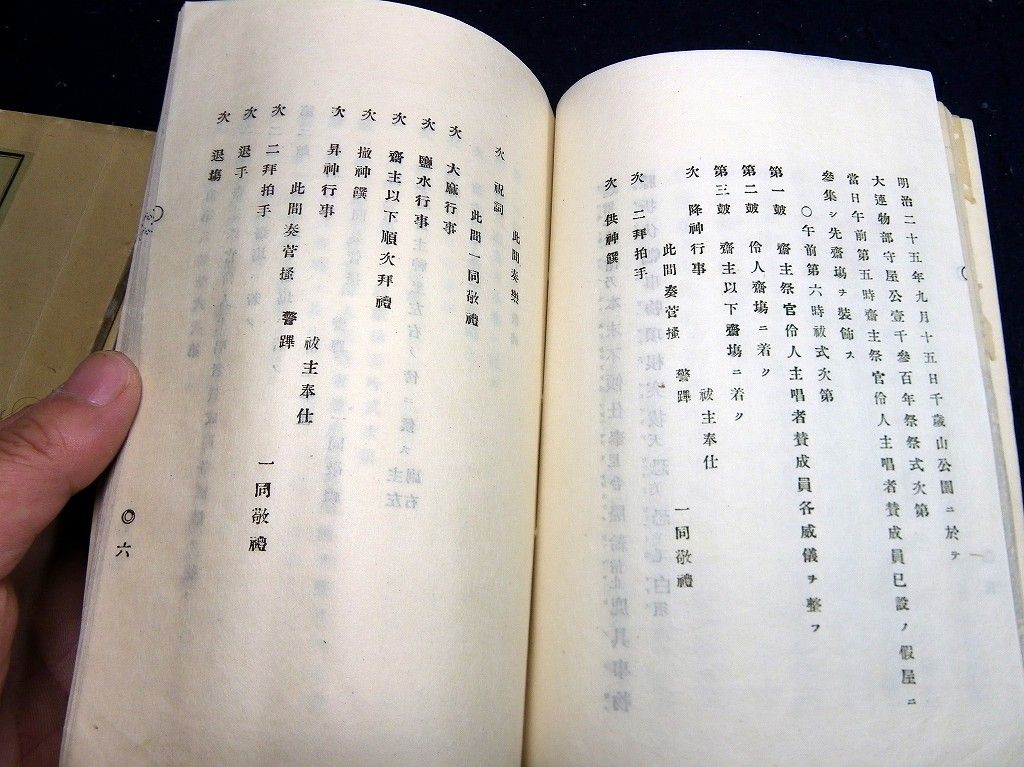 明治二十五年九月十五日千歲山公園ニ於テ
大連物部守屋公壹千叁百年祭祭式次第
當日午前第五時齋主祭官伶人主唱者賛成員已設ノ假屋ニ
叅集シ先齋塲ヲ装飾ス
〇午前第六時祓式次第
第一鼓 齋主祭官伶人主唱者賛成員各威儀ヲ整フ
第二鼓 伶人齋塲ニ着ク
第三鼓 齋主以下齋塲ニ着ク
祓主奉仕
次 降神行事 警蹕 一同敬禮
此間奏菅搔
次 二拜拍手
次 供神饌
此間奏樂
次 祝詞
此間一同敬禮
次 大麻行事
次 鹽水行事
次 齋主以下順次拜禮
次 撤神饌
祓主奉仕
次 昇神行事 警蹕 一同敬禮
此間奏菅搔
次 二拜拍手
次 退手
次 退塲
◎六